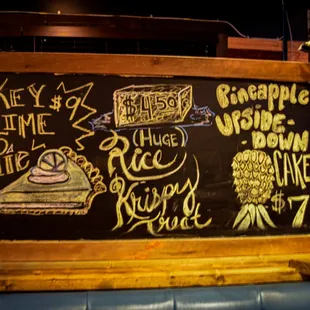 KEY $9
LIME
Pie
$4.50
(HUGE)
Rice
Krispy
Treat
Pineapple
UPSIDE-
DOWN
CAKE
$7